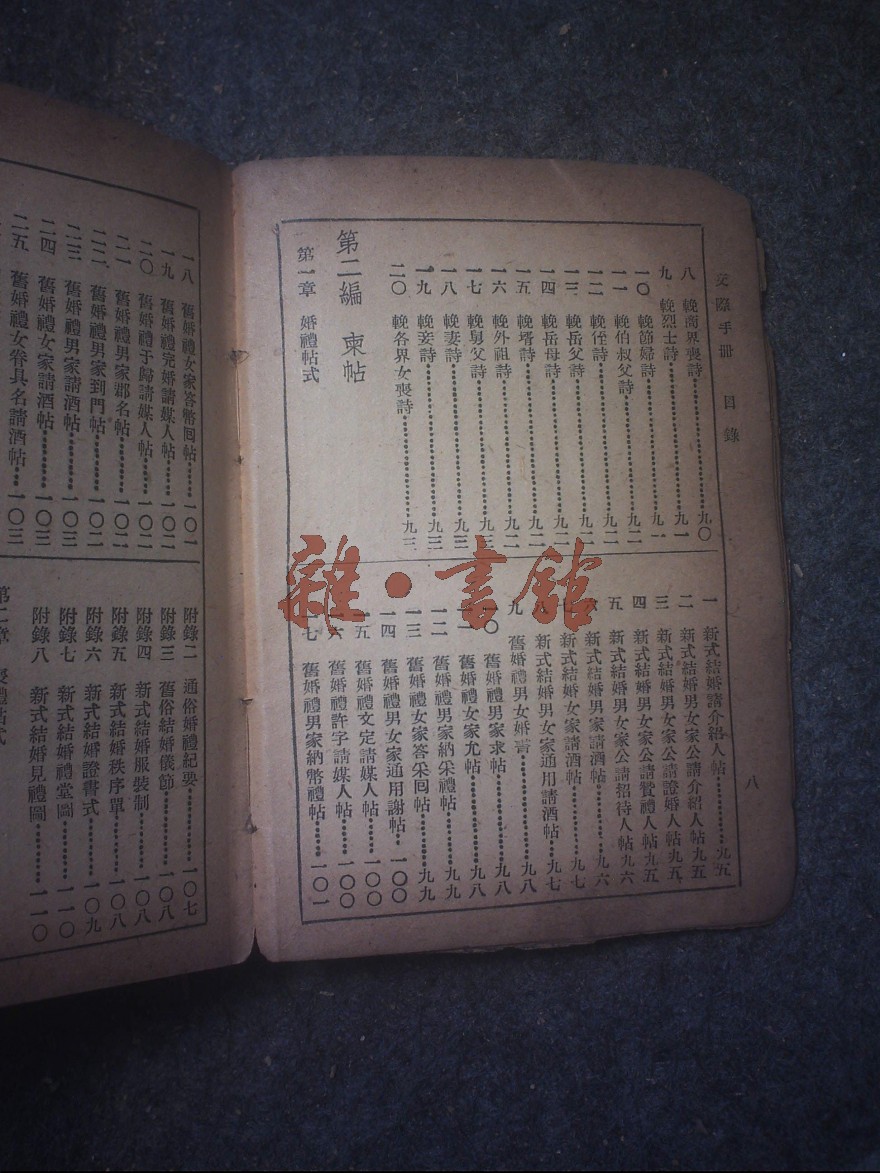 交際手冊 目錄 八
八 輓商界喪詩 九〇
九 輓烈士詩 九一
一〇 輓節婦詩 九一
一一 輓伯叔父詩 九二
一二 輓侄詩 九二
一三 輓岳父詩 九二
一四 輓岳母詩 九二
一五 輓壻詩 九二
一六 輓外祖詩 九二
一七 輓舅父詩 九三
一八 輓妻詩 九三
一九 輓妾詩 九三
二〇 輓各界女喪詩 九三
第二編 柬帖
第一章 婚禮帖式
一 新式結婚請介紹人帖 九五
二 新式結婚男女家公請介紹人帖 九五
三 新式結婚男女家公請證婚人帖 九五
四 新式結婚男女家公請贊禮人帖 九五
五 新式結婚男女家公請招待人帖 九六
六 新式結婚男家請酒帖 九六
七 新式結婚女家請酒帖 九七
八 新式結婚男女家通用請酒帖 九七
九 舊婚禮男女婚書 九八
一〇 舊婚禮男家求帖 九八
一一 舊婚禮女家允帖 九八
一二 舊婚禮男家納采禮帖 九九
一三 舊婚禮女家答采囘帖 九九
一四 舊婚禮男女家通用謝帖 一〇〇
一五 舊婚禮文定請媒人帖 一〇〇
一六 舊婚禮許字請媒人帖 一〇〇
一七 舊婚禮男家納幣禮帖 一〇一
一八 舊婚禮女家答幣囘帖 一〇一
一九 舊婚禮完婚請媒人帖 一〇二
二〇 舊婚禮于歸請媒人帖 一〇二
二一 舊婚禮男家郡名帖 一〇二
二二 舊婚禮男家到門帖 一〇二
二三 舊婚禮男家請酒帖 一〇三
二四 舊婚禮女家請酒帖 一〇三
二五 舊婚禮女眷具名請酒帖 一〇三
附錄二 通俗婚禮紀要 一〇七
附錄三 舊俗結婚儀節 一〇八
附錄四 新式結婚服裝制 一〇八
附錄五 新式結婚秩序單 一〇八
附錄六 新式結婚證書式 一〇九
附錄七 新式結婚禮堂圖 一一〇
附錄八 新式結婚見禮圖 一一〇
第二章
雜·書館